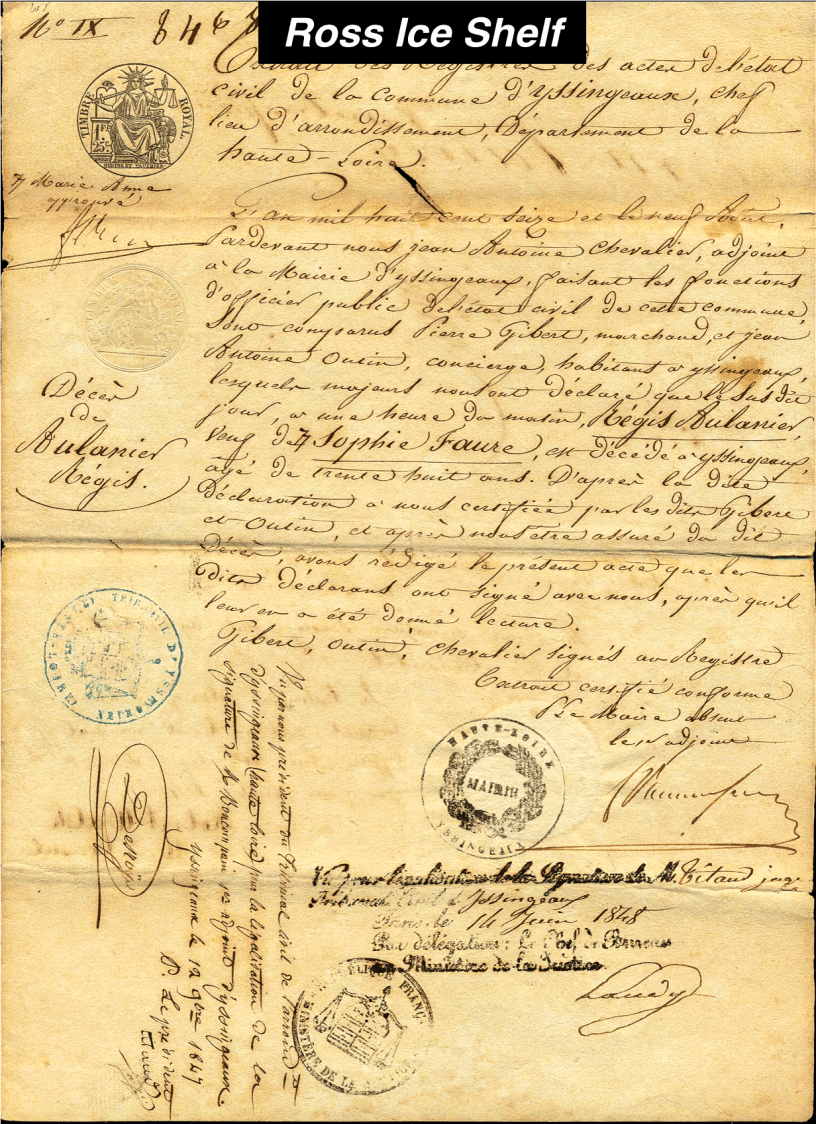 Ross Ice Shelf
No IX 846
Extrait des Registres des actes de l'état
civil de la Commune d'yssingeaux, chef
lieu d'arrondissement, Département de la
haute-Loire.
TIMBRE ROYAL
1 FR. 25 C.
7 Marie Anne
approuvé
L'an mil huit cent seize et le neuf Août,
Pardevant nous jean Antoine Chevalier, adjoint
à la Mairie d'yssingeaux, faisant les fonctions
d'officier public de l'état civil de cette commune,
sont comparus Pierre Gibert, marchand, et jean
Antoine Outin, concierge, habitant à yssingeaux,
lesquels majeurs nous ont déclaré que le susdit
jour, à une heure du matin, Régis Aulanier,
veuf de 7 Sophie Faure, est décédé à yssingeaux,
âgé de trente huit ans. D'après la dite
Déclaration à nous certifiée par les dits Gibert
et Outin, et après nous être assuré du dit
Décès, avons rédigé le présent acte que les
dits déclarans ont signé avec nous, après qu'il
leur en a été donné lecture.
Gibert, Outin, Chevalier signés au Registre
Extrait certifié conforme
P. Le Maire absent
Décès
de
Aulanier
Régis.
TRIBUNAL D'YSSINGEAUX
HAUTE-LOIRE
MAIRIE
YSSINGEAUX
Vu par nous président du Tribunal civil de l'arrond
d'yssingeaux (haute loire) pour la légalisation de la
signature de M. Boncompain 1er adjoint d'yssingeaux.
yssingeaux le 12 9bre 1847
P. Le président
Vu pour légalisation de la Signature de M. Titaud juge
Tribunal Civil d'Yssingeaux
Paris le 14 Juin 1848
Par délégation: Le Chef de Bureau
Ministère de la Justice
RÉPUBLIQUE FRANÇ.
MINISTÈRE DE LA JUSTICE